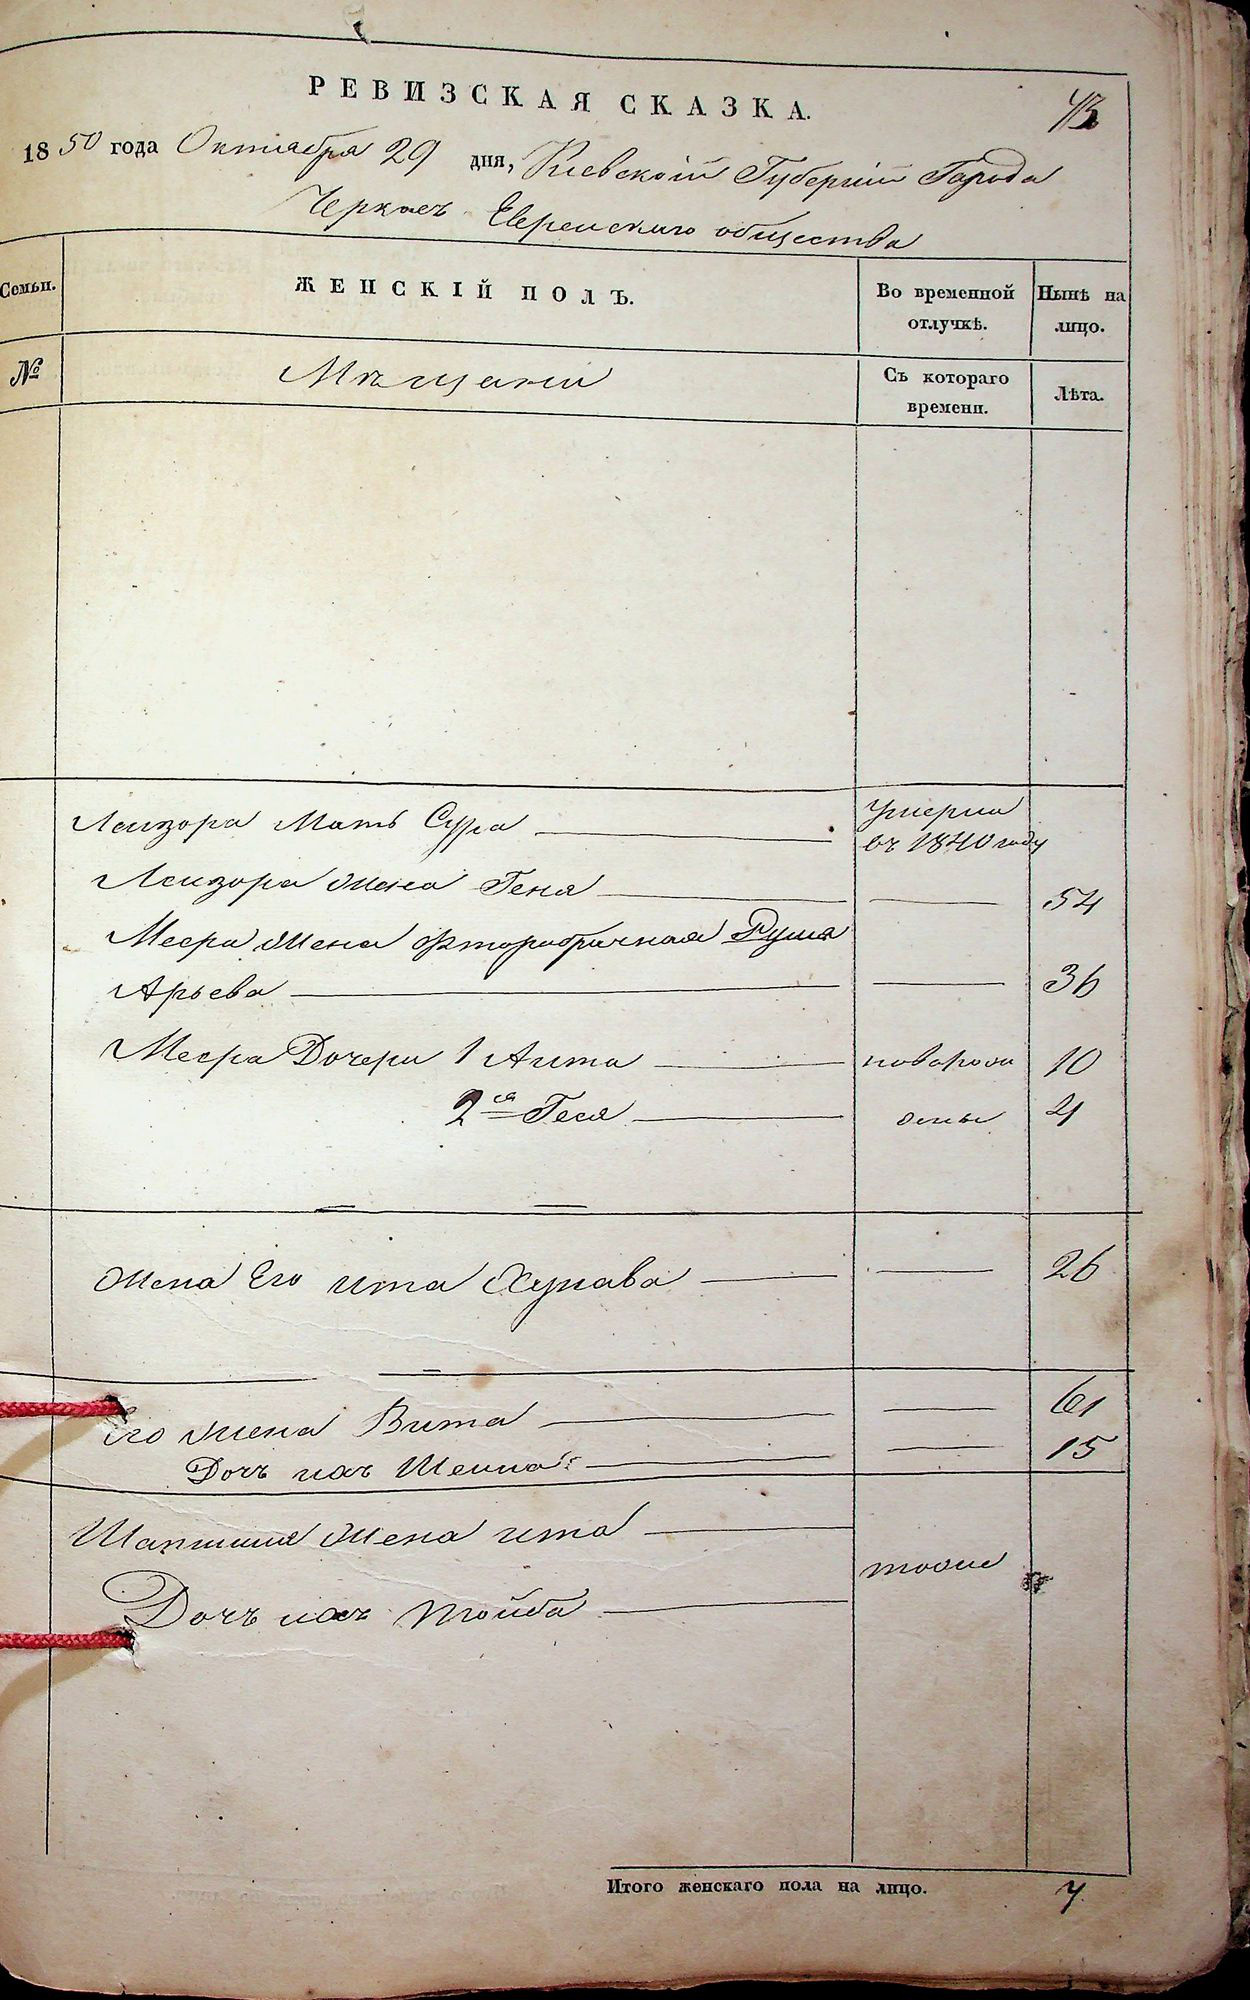 РЕВИЗСКАЯ СКАЗКА.
43
1850 года Октября 29 дня, Киевской Губернии Города
Черкас Еврейского общества
Семьи.
ЖЕНСКІЙ ПОЛЪ.
Во временной отлучкѣ.
Нынѣ на лицо.
№
Мещани
Съ котораго времени.
Лѣта.
Лейзора Мать Сура умерла в 1840 году
Лейзора Жена Геня 54
Меера Жена фторобрачная Руша
Арьева 36
Меера Дочери 1 Анта новорожденые 10
2ся Геся 4
Жена Его ита Хунава 26
Его жена Вита 61
Дочь их Шейна 15
Шапшия жена ита
Дочь их Тойба
тоже
Итого женскаго пола на лицо. 7